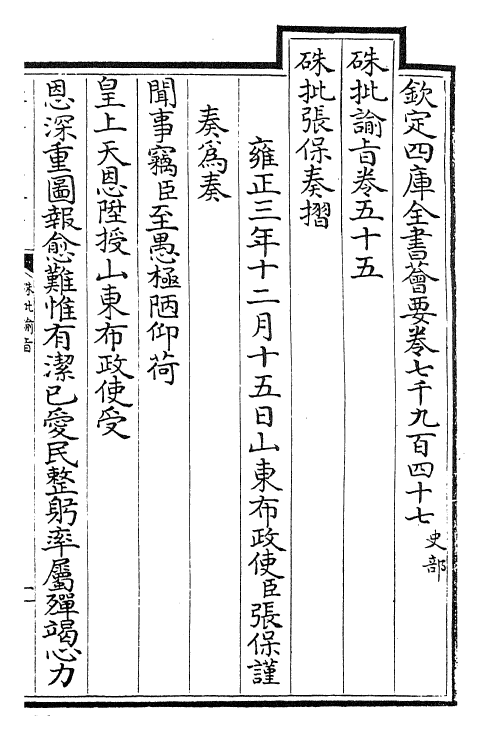 欽定四庫全書薈要卷七千九百四十七史部
硃批諭旨卷五十五
硃批張保奏摺
雍正三年十二月十五日山東布政使臣張保謹
奏為奏
聞事竊臣至愚極陋仰荷
皇上天恩陞授山東布政使受
恩深重圖報愈難惟有潔已愛民整躬率屬殫竭心力
硃批諭旨
一